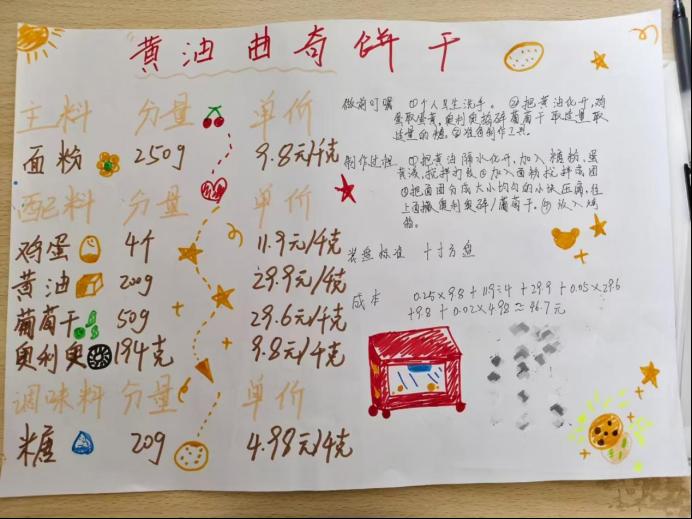 黄油曲奇饼干
主料 分量 单价
面粉 250g 9.8元/千克
配料 分量 单价
鸡蛋 4个 11.9元/千克
黄油 200g 29.9元/千克
葡萄干 50g 29.6元/千克
奥利奥 194克 9.8元/千克
调味料 分量 单价
糖 20g 4.98元/千克
做前叮嘱 ①个人卫生洗手。②把黄油化开,鸡
蛋取蛋黄,奥利奥捣碎葡萄干取适量取
适量的糖。③准备制作工具。
制作过程 ①把黄油隔水化开,加入糖粉、蛋
黄液,搅拌均匀②加入面粉搅拌成团
③把面团分成大小均匀的小块压扁,往
上面撒奥利奥碎/葡萄干。④放入烤
箱。
装盘标准 十寸方盘
成本 0.25×9.8+119÷4+29.9+0.05×29.6
+9.8+0.02×4.98≈46.7元